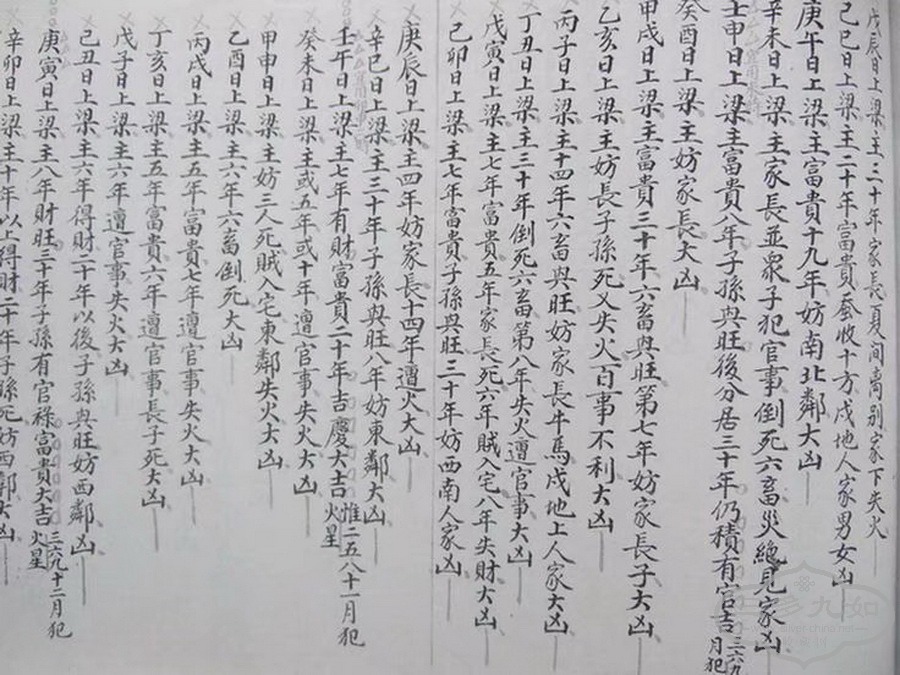 戊辰日上梁主三十年家長夏间离别家下失火
己巳日上梁主二十年富貴蚕收十方戊地人家男女凶
庚午日上梁主富貴十九年妨南北鄰大凶
辛未日上梁主家長並衆子犯官事倒死六畜災絕見家凶
壬申日上梁主富貴八年子孫與旺後分居三十年仍積有官吉 三六九月犯
癸酉日上梁主妨家長大凶
甲戌日上梁主富貴三十年六畜與旺第七年妨家長子大凶
乙亥日上梁主妨長子孫死又失火百事不利大凶
丙子日上梁主十四年六畜與旺妨家長牛馬戌地上人家大凶
丁丑日上梁主三十年倒死六畜第八年失火遭官事大凶
戊寅日上梁主七年富貴五年家長死六年賊入宅八年失財大凶
己卯日上梁主七年富貴子孫與旺三十年妨西南人家凶
庚辰日上梁主四年妨家長十四年遭火大凶
辛巳日上梁主三十年子孫與旺八年妨東鄰大凶
壬午日上梁主七年有財富貴二十年吉慶大吉 惟二五八十一月犯火星
癸未日上梁主或五年或十年遭官事失火大凶
甲申日上梁主妨三人死賊入宅東鄰失火大凶
乙酉日上梁主六年六畜倒死大凶
丙戌日上梁主五年富貴七年遭官事失火大凶
丁亥日上梁主五年富貴六年遭官事長子死大凶
戊子日上梁主六年遭官事失火大凶
己丑日上梁主六年得財二十年以後子孫與旺妨西鄰凶
庚寅日上梁主八年財旺三十年子孫有官祿富貴大吉 三六九十二月犯火星
辛卯日上梁主十年以上得財二十年子孫死妨西鄰大凶